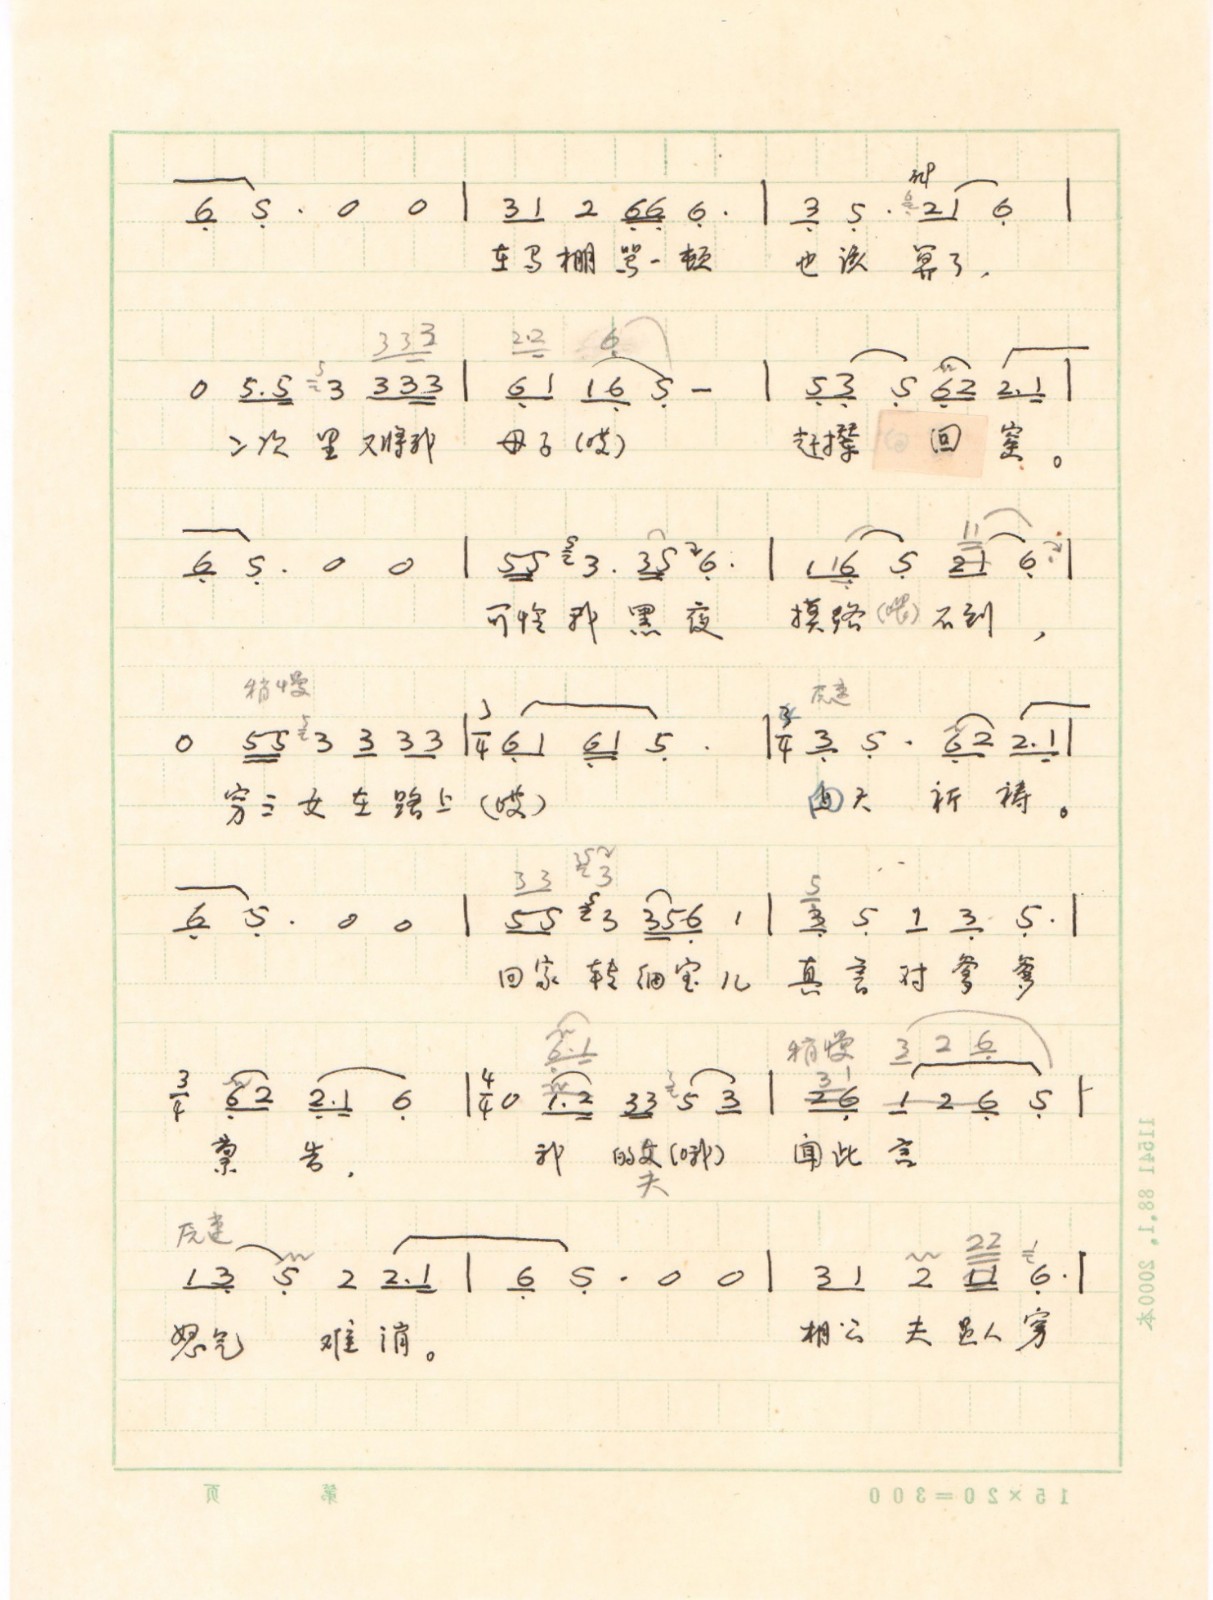 6 5 . 0 0 | 3 1 2 6 6 6 . | 3 5 . 2 1 6 |
在马棚骂一顿 也该 算了,
3 3 3 2.2 6
0 5.5 5 3 3 3 3 | 6 1 1 6 5 — | 5 3 5 6 2 2.1 |
二次里又将我 母子(哎) 赶撵 回 窑。
1 1
6 5 . 0 0 | 5 5 5 3 . 3 5 2 6 . | 1 1 6 5 2 1 6 |
可怜我黑夜 摸路(嘿)不到,
稍慢 反速
0 5 5 5 3 3 3 3 | 3/4 6 1 6 1 5 . | 3/4 3 5 . 6 2 2.1 |
穷三女在路上(哎) 向天 祈祷。
3 3 3 5
6 5 . 0 0 | 5 5 5 3 3 5 6 1 | 3 5 1 3 5 . |
回家转细宝儿 真言对爹爹
6.1 稍慢 3 2 6
3/4 6 2 2.1 6 | 4/4 0 1.2 3 3 5 3 | 2 6 1 2 6 5
禀告, 我 的丈(哦) 闻此言
夫
反速 2 2 1
1 3 5 2 2.1 | 6 5 . 0 0 | 3 1 2 1 1 6 . |
怒气 难消。 相公夫是人穷
第 页
15×20=300
11641 88.1. 2000本